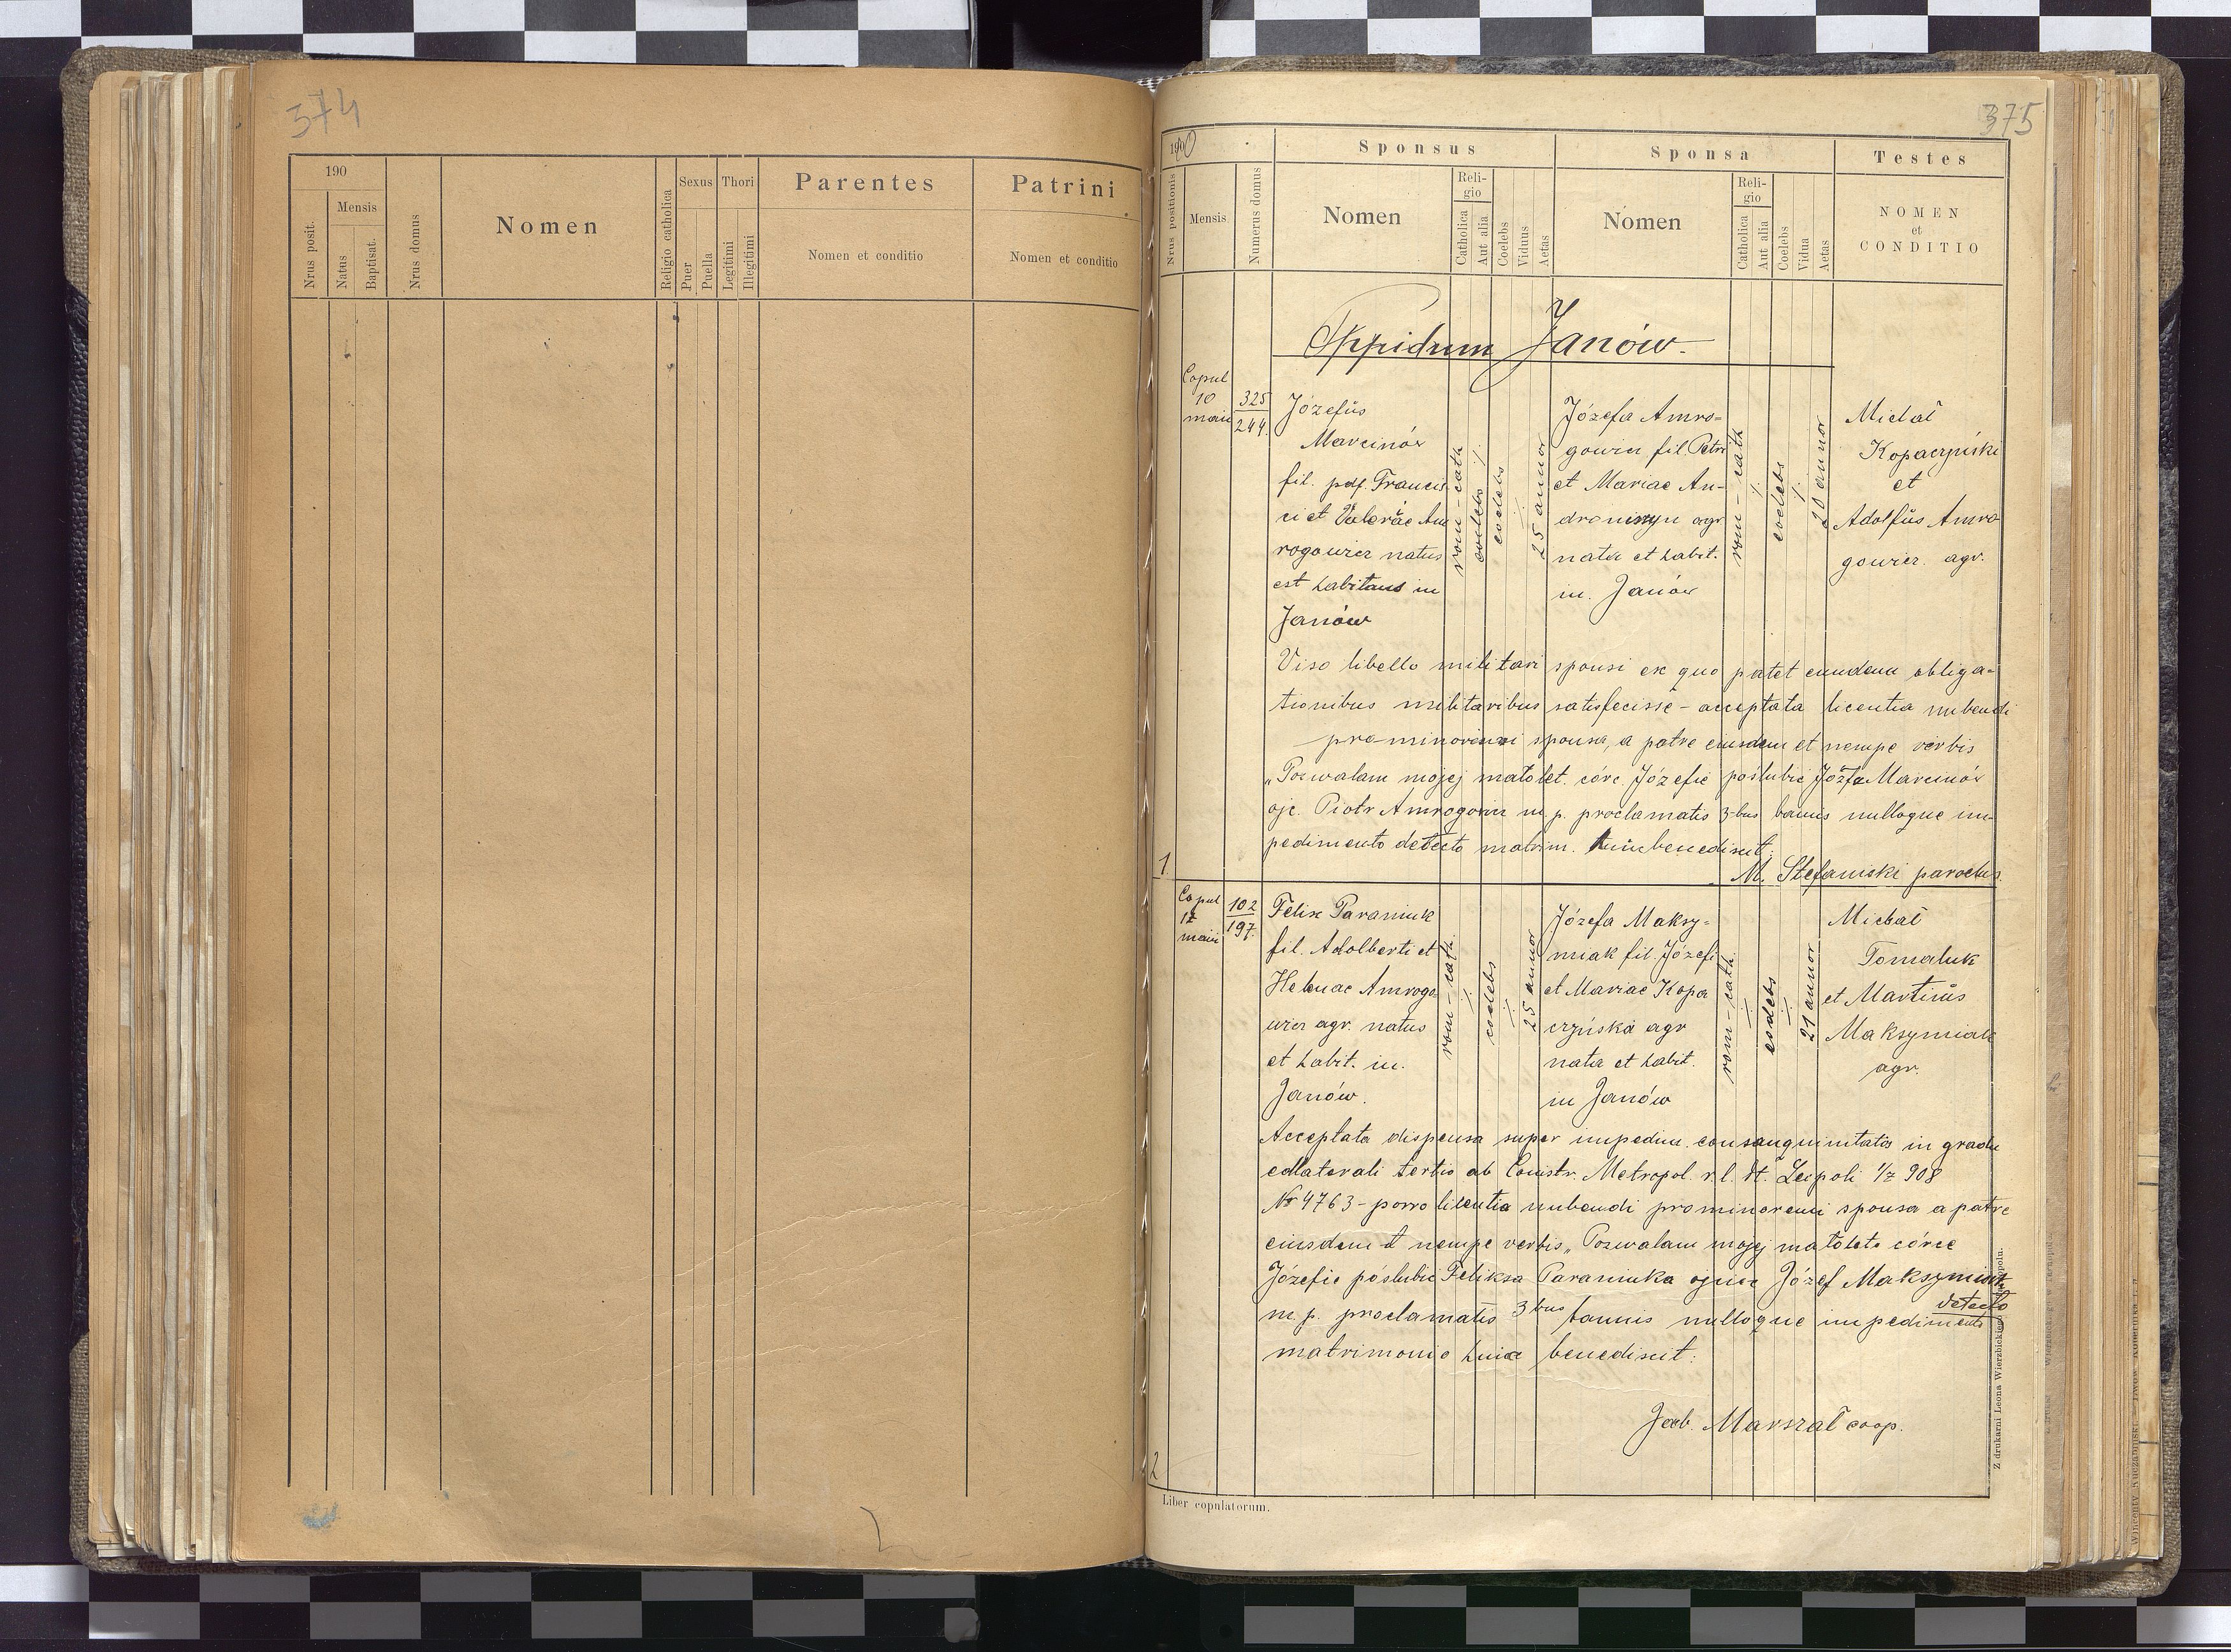 374
190
Nrus posit.
Mensis
Natus
Baptisat.
Nrus domus
Nomen
Religio catholica
Sexus
Puer
Puella
Thori
Legitimi
Illegitimi
Parentes
Nomen et conditio
Patrini
Nomen et conditio
375
Nrus positionis
Mensis
Numerus domus
Sponsus
Nomen
Religio
Catholica
Aut alia
Coelebs
Viduus
Aetas
Sponsa
Nomen
Religio
Catholica
Aut alia
Coelebs
Vidua
Aetas
Testes
NOMEN
et
CONDITIO
Oppidum Janów.
Copul
10
maii
325
244.
Józefus
Marcinów
fil. pdf. Francis
ci et Valerae Am
rogowicz natus
est habitans in
Janów
rom-cath
coelebs
coelebs
25 annor
Józefa Amro-
gowicz fil. Petri
et Mariae An-
droniszyn agr
nata et habit.
in. Janów
rom-cath
coelebs
annor
Michał
Kopaczyński
et
Adolfus Amro
gowicz. agr.
Viso libello militari sponsi ex quo patet eundem obliga-
tionibus militaribus satisfecisse - acceptata licentia nubendi
pro minorenni sponsa, a patre eiusdem et nempe verbis
„Pozwalam mojej małolet. córc. Józefie poślubić Józfa Marcinów
ojc. Piotr Amrogowicz m. p. proclamatis 3-bus bannis nulloque im-
pedimento detecto matrim. huic benedixit:
1.
M. Stefański parochus.
Copul
17
maii
102
197.
Felix Paraniuk
fil. Adalberti et
Helenae Amrogo
wicz agr. natus
et habit. in.
Janów.
rom-cath.
coelebs
25 annor
Józefa Maksy-
miak fil. Józefi
et Mariae Kopa
czyńska agr
nata et habit.
in Janów
rom-cath.
coelebs
21 annor
Michał
Tomaluk
et Martinus
Maksymiak
agr.
Acceptata dispensa super impedim. consanguinitatis in gradu
collaterali tertio ab Consistr. Metropol. r. l. dt. Leopoli 908
Nr 4763 - porro licentia nubendi pro minorenni sponsa a patre
eiusdem et nempe verbis „Pozwalam mojej małolets córce
Józefie poślubić Feliksa Paraniuka ojciec Józef Maksymiak
m. p. proclamatis 3bus bannis nulloque impedimento detecto
matrimonio huic benedixit:
Jacb. Marszał coop.
2
Liber copulatorum.
Z drukarni Leona Wierzbickiego